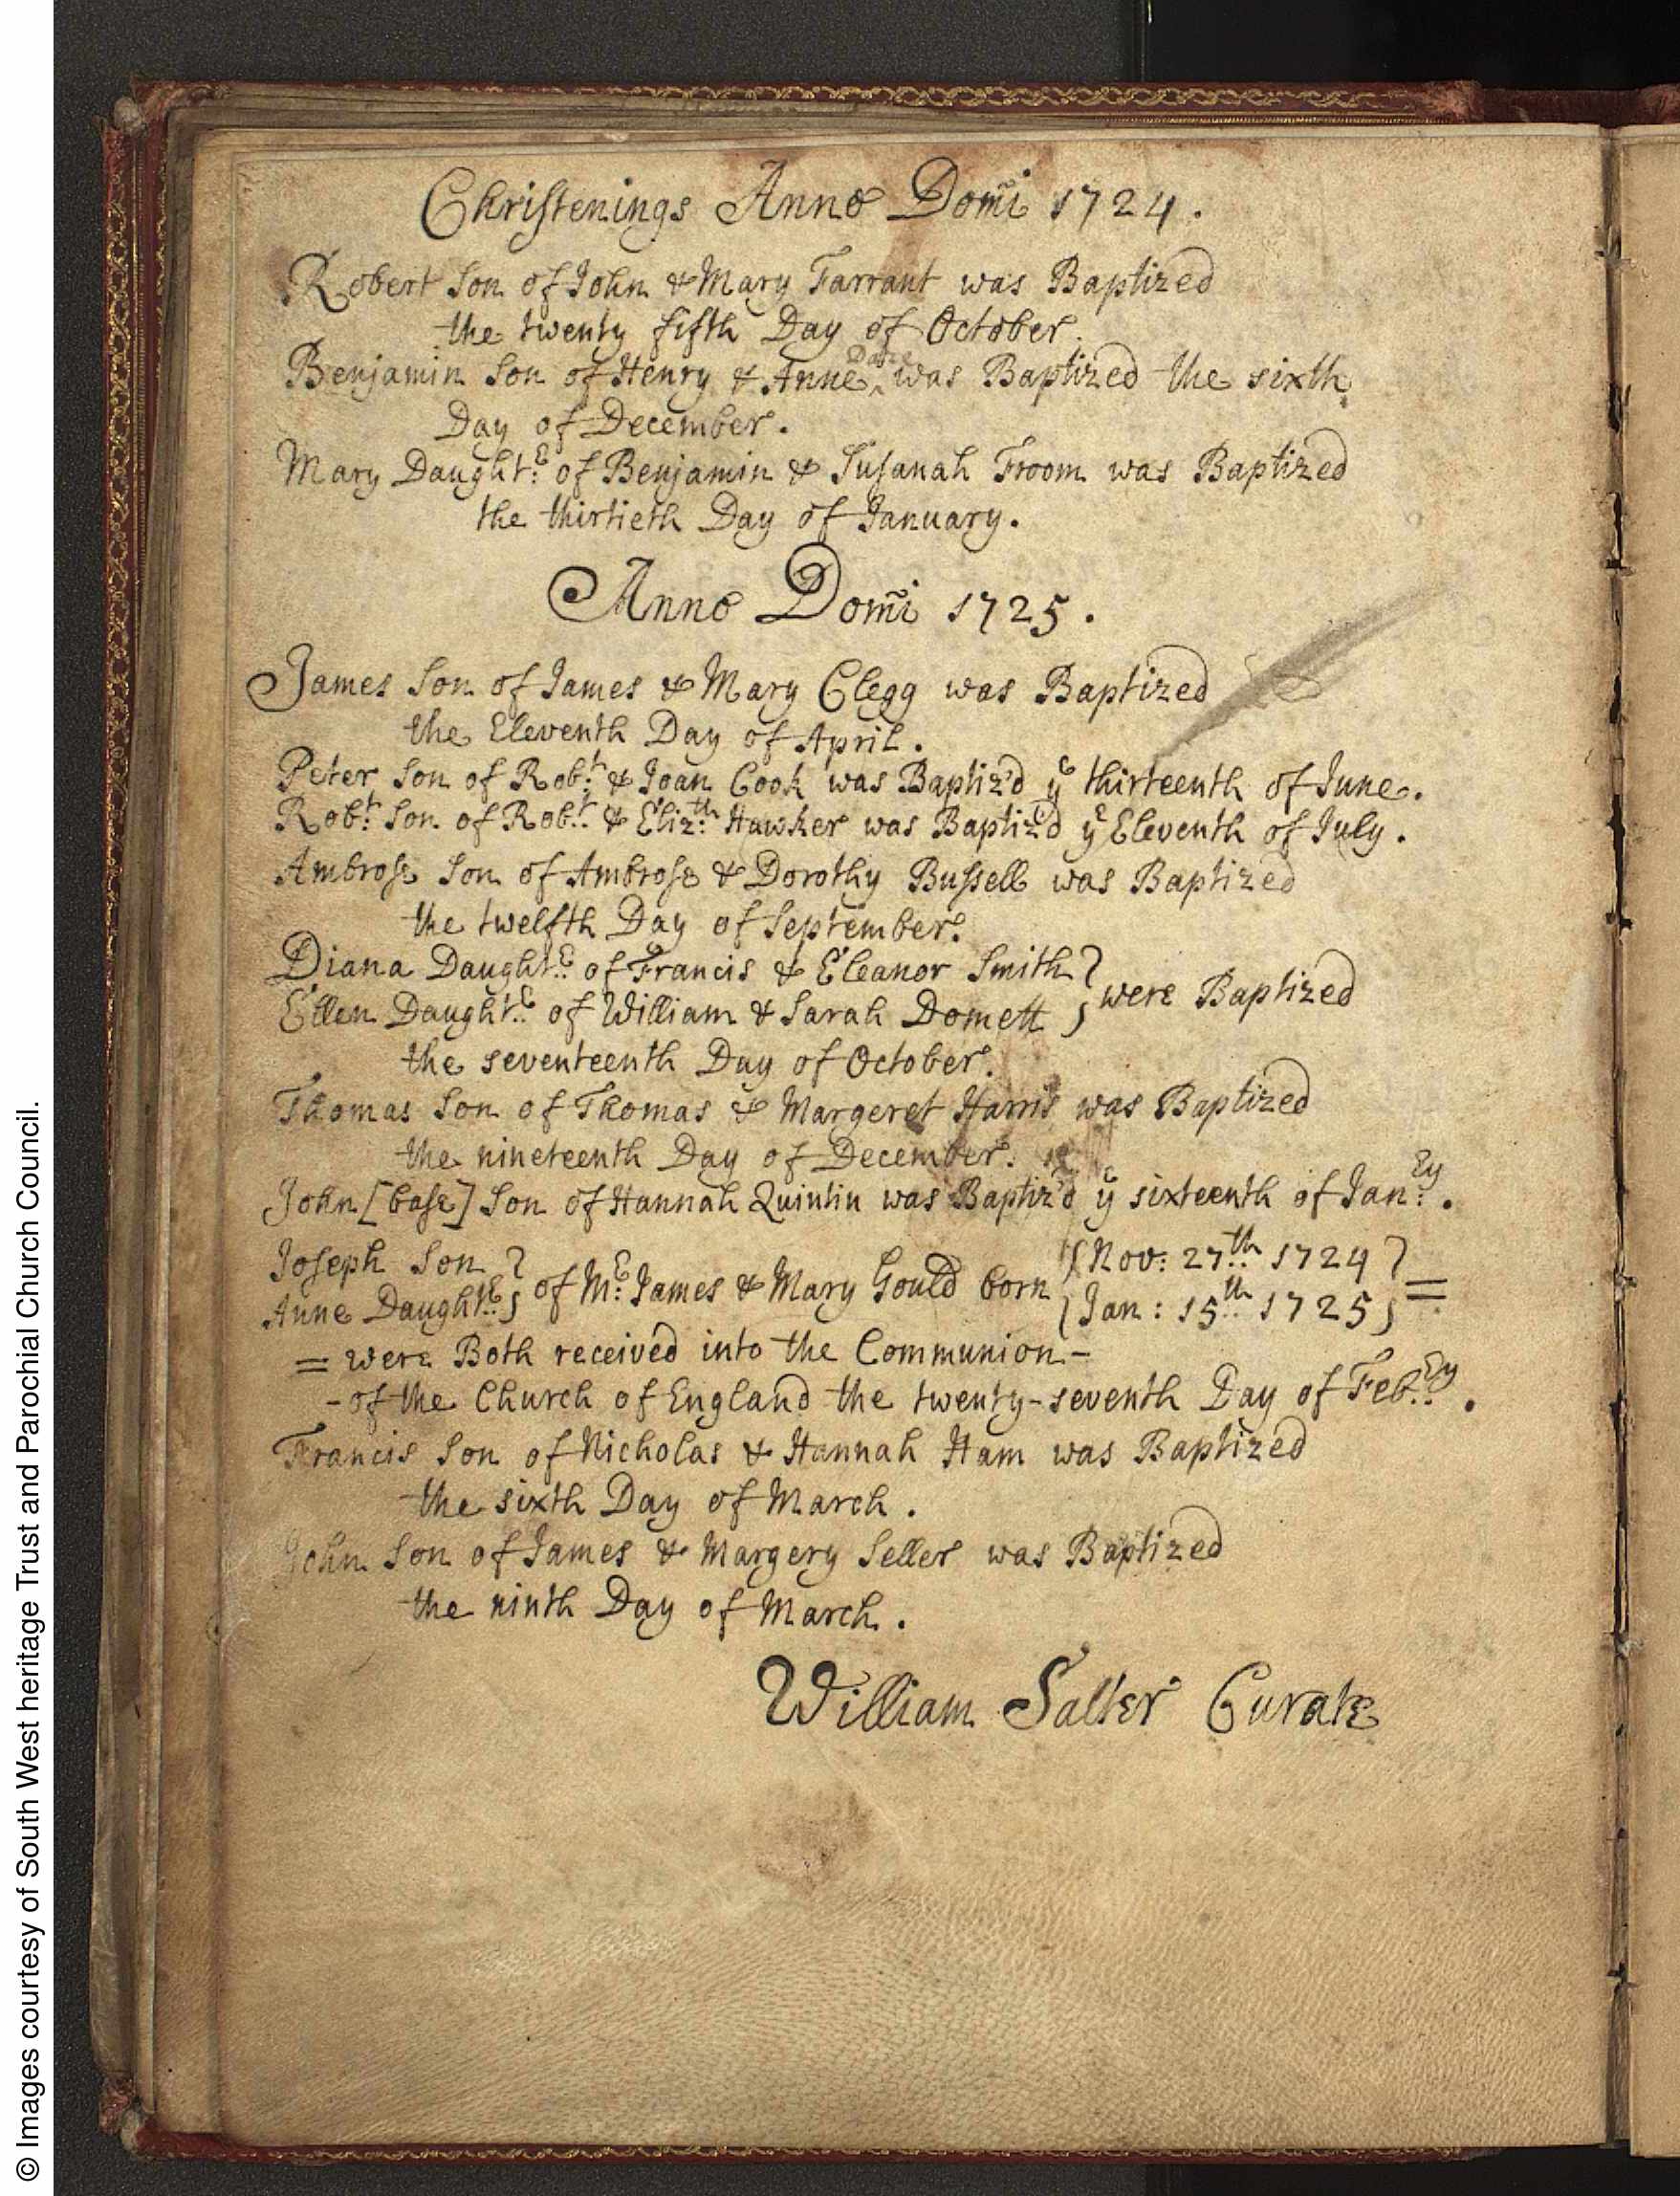 Christenings Anno Domi 1724.
Robert Son of John & Mary Farrant was Baptized
the twenty fifth Day of October.
Benjamin Son of Henry & Anne ^ was Baptized the sixth
Day of December.
Mary Daughtr: of Benjamin & Susanah Froom was Baptized
the thirtieth Day of January.
Anno Domi 1725.
James Son of James & Mary Clegg was Baptized
the Eleventh Day of April.
Peter Son of Robt: & Joan Cook was Baptiz'd ye thirteenth of June.
Robt: Son of Robt: & Elizth: Hawker was Baptiz'd ye Eleventh of July.
Ambrose Son of Ambrose & Dorothy Bussell was Baptized
the twelfth Day of September.
Diana Daughtr: of Francis & Eleanor Smith }
Ellen Daughtr: of William & Sarah Domett } were Baptized
the seventeenth Day of October.
Thomas Son of Thomas & Margeret Harris was Baptized
the nineteenth Day of December.
John [base] Son of Hannah Quintin was Baptiz'd ye sixteenth of Janry: .
Joseph Son } of Mr: James & Mary Gould born { Nov: 27th 1724 } =
Anne Daughtr: } { Jan: 15th: 1725 }
= were Both received into the Communion -
- of the Church of England the twenty-seventh Day of Febry: .
Francis Son of Nicholas & Hannah Ham was Baptized
the sixth Day of March.
John Son of James & Margery Seller was Baptized
the ninth Day of March.
William Salter Curate
© Images courtesy of South West heritage Trust and Parochial Church Council.